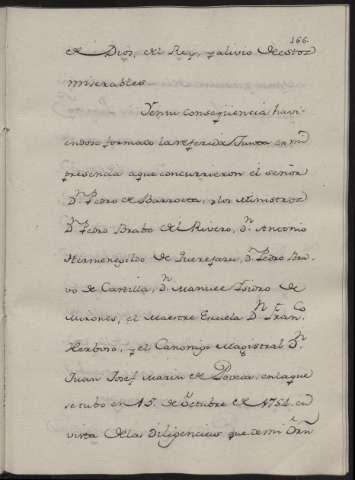 166.
de Dios, del Rey, y alivio de estos
miserables.
Y en su conseqüencia havi-
endose formado la referida Junta en mi
presencia a que concurrieron el señor
Dn. Pedro de Barroeta, y los Ministros
Dn. Pedro Brabo del Rivero, Dn. Antonio
Hermenegildo de Querejazu, Dn. Pedro Bra-
vo de Castilla, Dn. Manuel Isidro de
Mirones, el Maestre Escuela Dn. Franco.
Herboso, y el Canonigo Magistral Dn.
Juan Josef Marin de Poveda, en la que
se tubo en 15. de Octubre de 1754. en
vista de las diligencias que de mi Orn